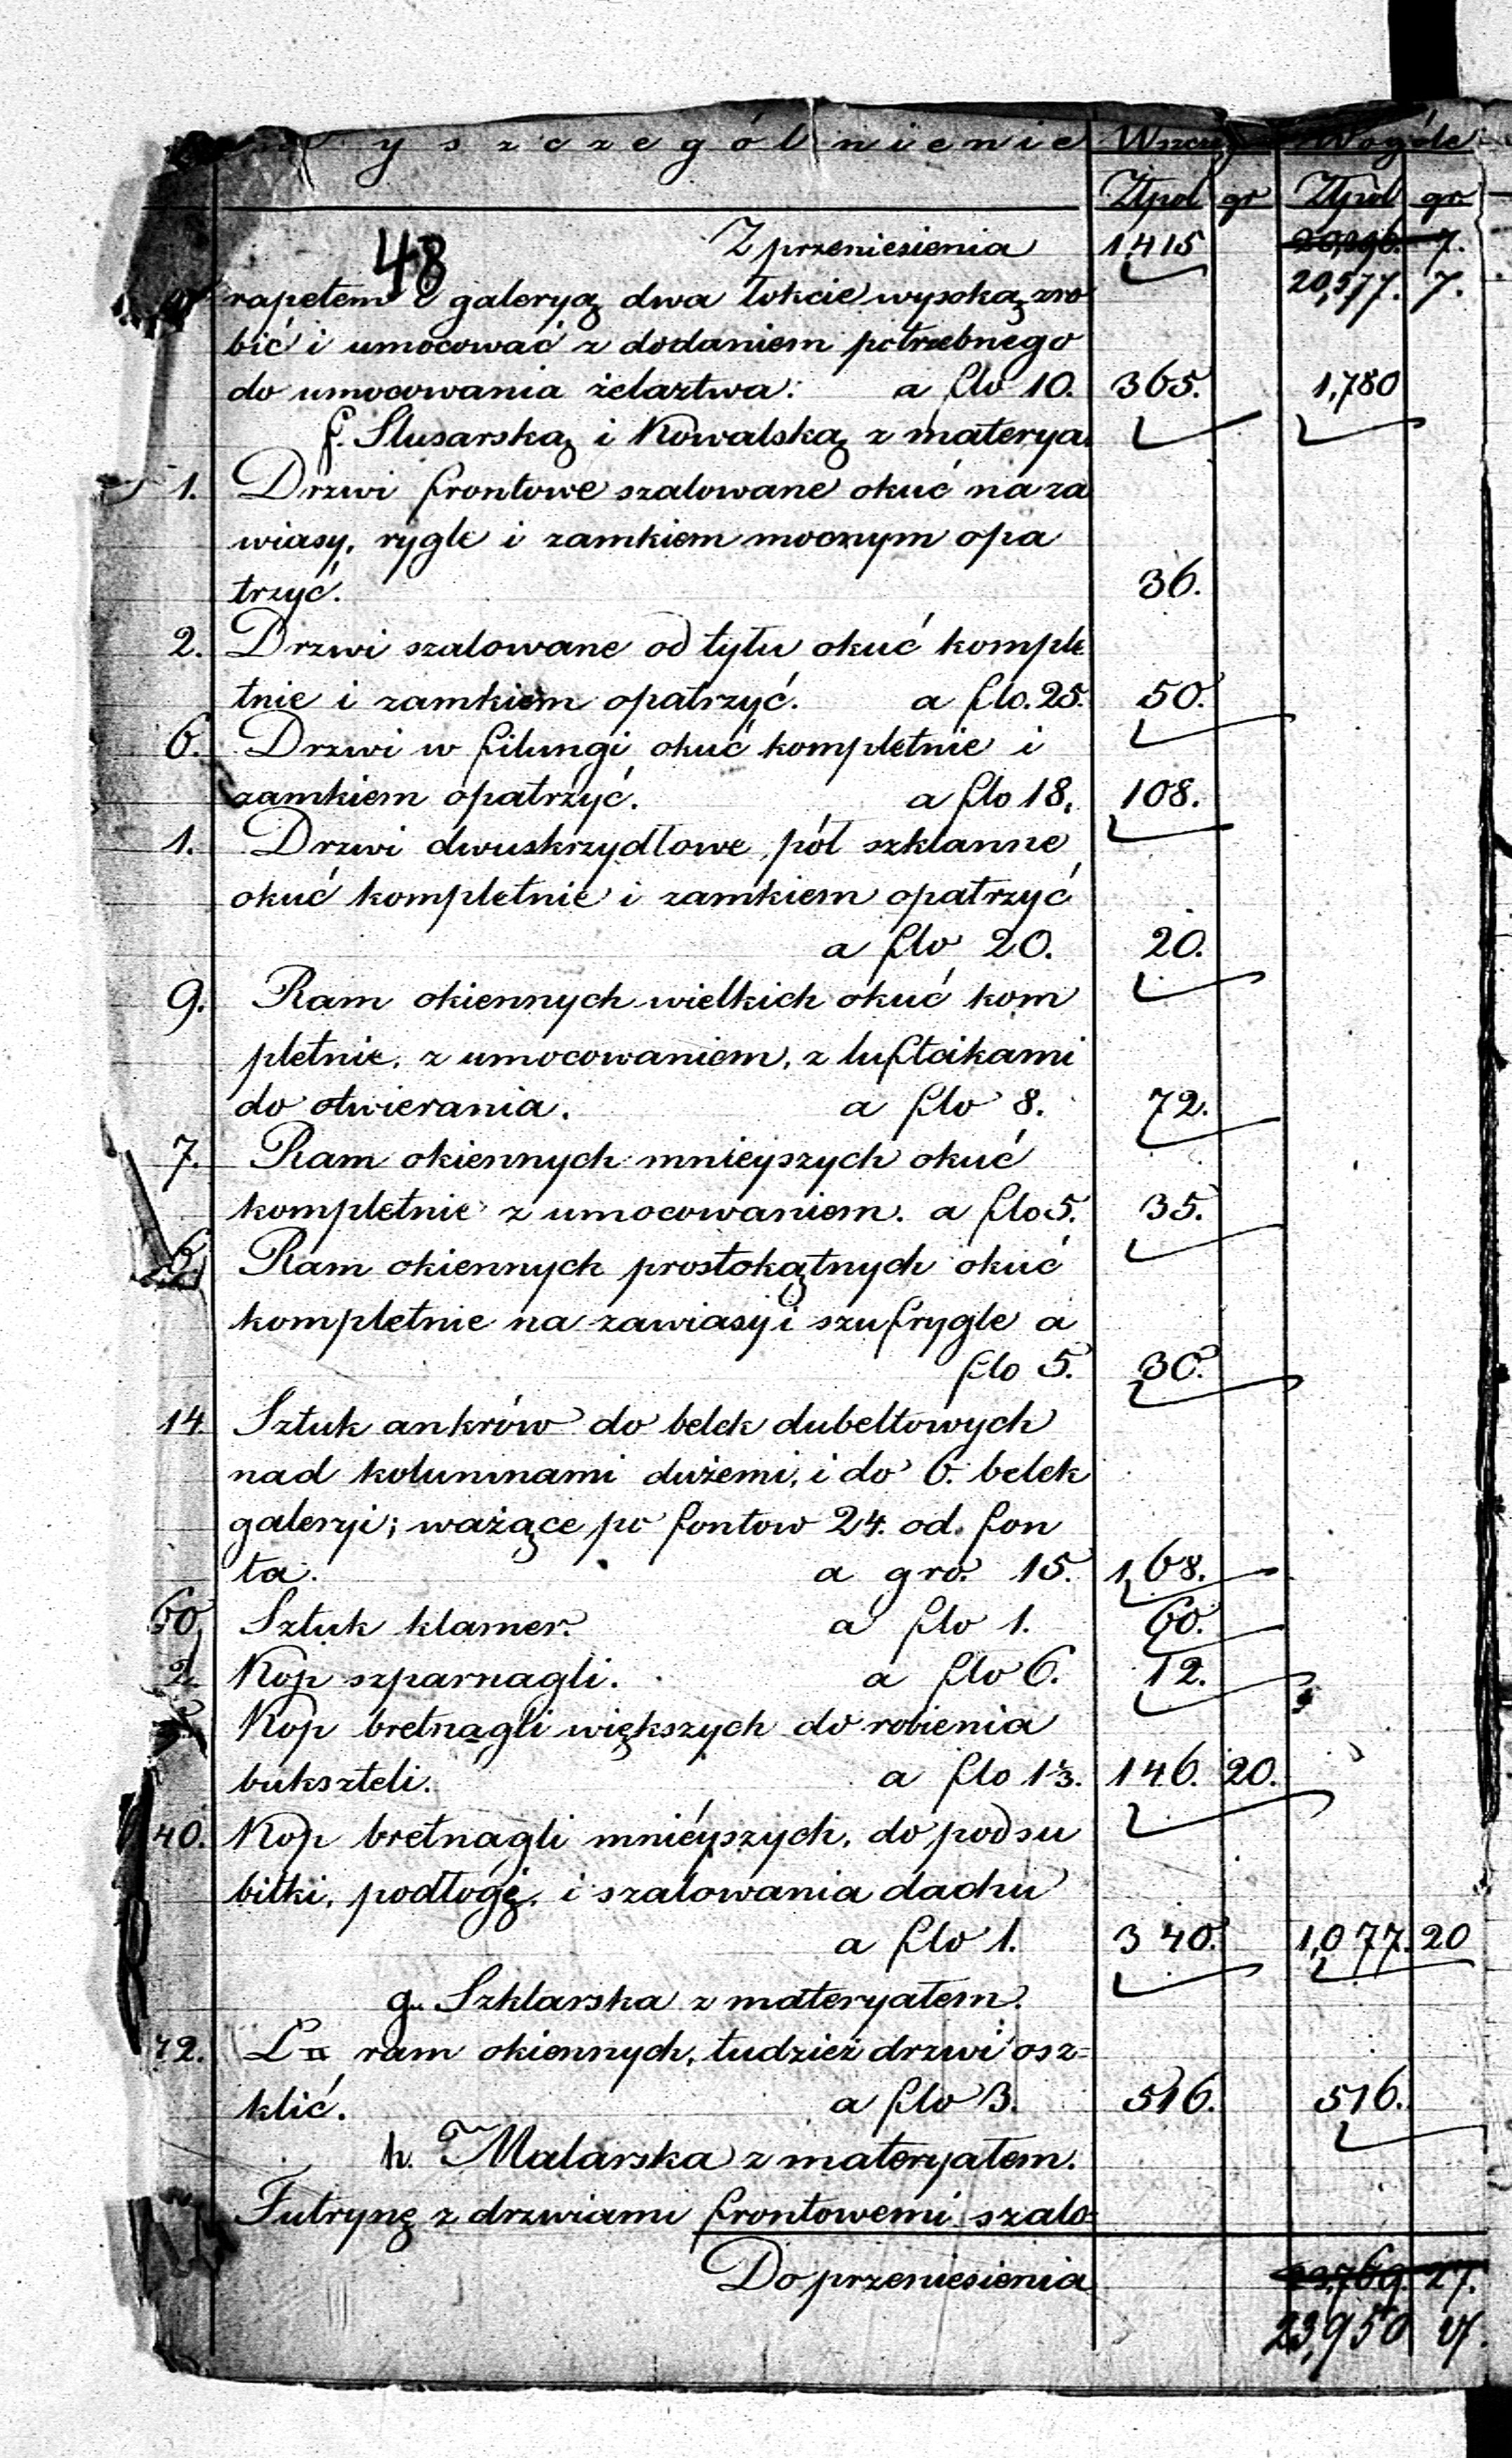 yszczególnienie Wszcze Wogóle
Złpol gr Złpol gr
48 Z przeniesienia 1,415 7.
20,577. 7.
rapetem i galeryą dwa łokcie wysoką zro
bić i umocować z dodaniem potrzebnego
do umocowania żelaztwa: a flo 10. 365. 1,780
f. Slusarską i Kowalską z materya.
1. Drzwi frontowe szalowane okuć na za
wiasy, rygle i zamkiem mocnym opa
trzyć. 36.
2. Drzwi szalowane od tyłu okuć komple
tnie i zamkiem opatrzyć. a flo. 25. 50.
6. Drzwi w filungi okuć kompletnie i
zamkiem opatrzyć. a flo 18. 108.
1. Drzwi dwuskrzydłowe pół szklanne
okuć kompletnie i zamkiem opatrzyć
a flo 20. 20.
9. Ram okiennych wielkich okuć kom
pletnie, z umocowaniem, z luftcikami
do otwierania. a flo 8. 72.
7. Ram okiennych mnieyszych okuć
kompletnie z umocowaniem. a flo 5. 35.
6. Ram okiennych prostokątnych okuć
kompletnie na zawiasy i szufrygle a
flo 5. 30.
14. Sztuk ankrów do belek dubeltowych
nad kolumnami dużemi, i do 6. belek
galeryi; ważące po fontow 24. od fon
ta. a gro. 15. 168.
60. Sztuk klamer. a flo 1. 60.
2. Kop szparnagli. a flo 6. 12.
Kop bretnągli większych do robienia
bukszteli. a flo 1⅓. 146. 20.
40. Kop bretnągli mnieyszych, do podsu
bitki, podłogę, i szalowania dachu
a flo 1. 340. 1,077. 20
g. Szklarska z materyałem.
72. ram okiennych, tudzież drzwi osz=
klić. a flo 3. 516. 516.
h. Malarska z materyałem.
Futrynę z drzwiami frontowemi szalo-
Do przeniesienia 22,769. 27.
23,950 27.